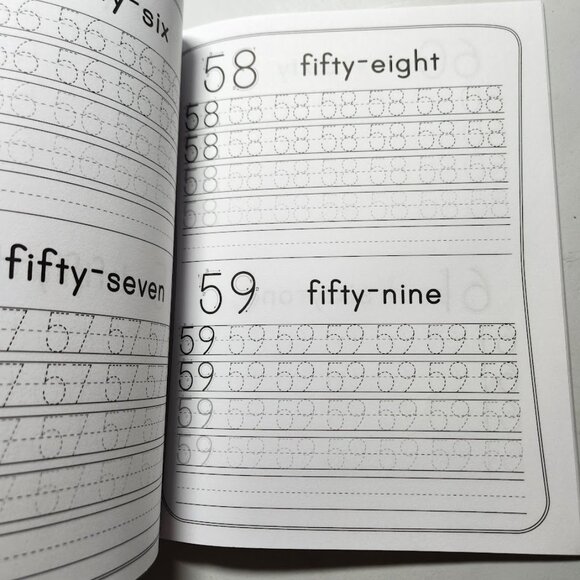 y-six
56 56 56
56 56 56
56 56 56
56 56 56
fifty-seven
57 57 57
57 57 57
57 57 57
57 57 57
58 fifty-eight
58 58 58 58 58 58 58
58 58 58 58 58 58 58
58 58 58 58 58 58 58
58 58 58 58 58 58 58
59 fifty-nine
59 59 59 59 59 59 59
59 59 59 59 59 59 59
59 59 59 59 59 59 59
59 59 59 59 59 59 59